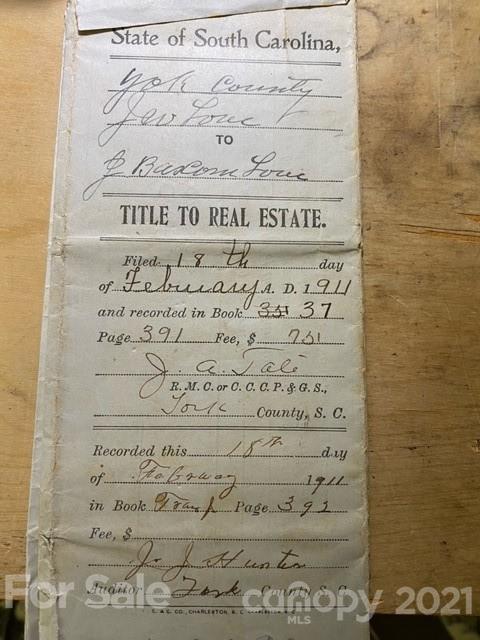 State of South Carolina,
York County
J W Love
TO
J Baxom Love
TITLE TO REAL ESTATE.
Filed 18th day
of February A. D. 1911
and recorded in Book 351 37
Page 391 Fee, $ 751
J. A. Tate
R. M. C. or C. C. C. P. & G. S.,
York County, S. C.
Recorded this 18th day
of February 1911
in Book Transf Page 392
Fee, $
J. J. Hunter
Auditor York County S. C.
For Sale Canopy 2021
MLS